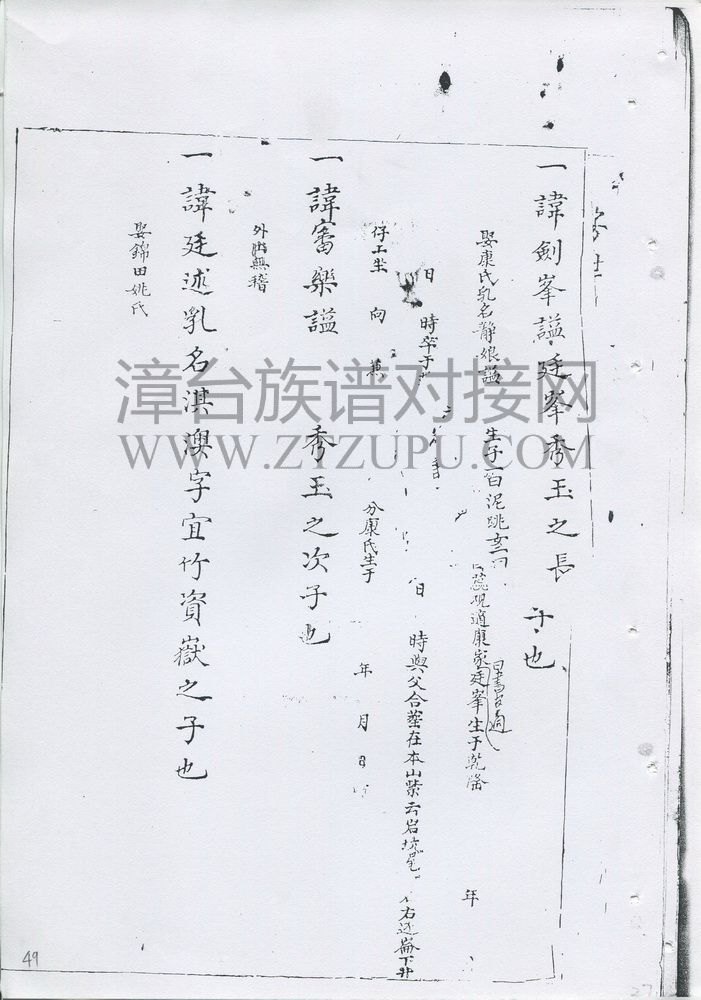 一諱劍峯謚廷峯秀玉之長子也
娶康氏乳名靜娘謚 生于 白泥跳
蕊硯適康家廷峯生于乾隆 年
日 時卒于
日 時與父合葬在本山紫云岩坑尾 右边崙下井
仔工坐 向 兼 分康氏生于 年 月 日
一諱審樂謚 秀玉之次子也
外出無稽
一諱廷述乳名淇澳字宜竹資嶽之子也
娶錦田姚氏
漳台族谱对接网
WWW.ZTZUPU.COM
49
27